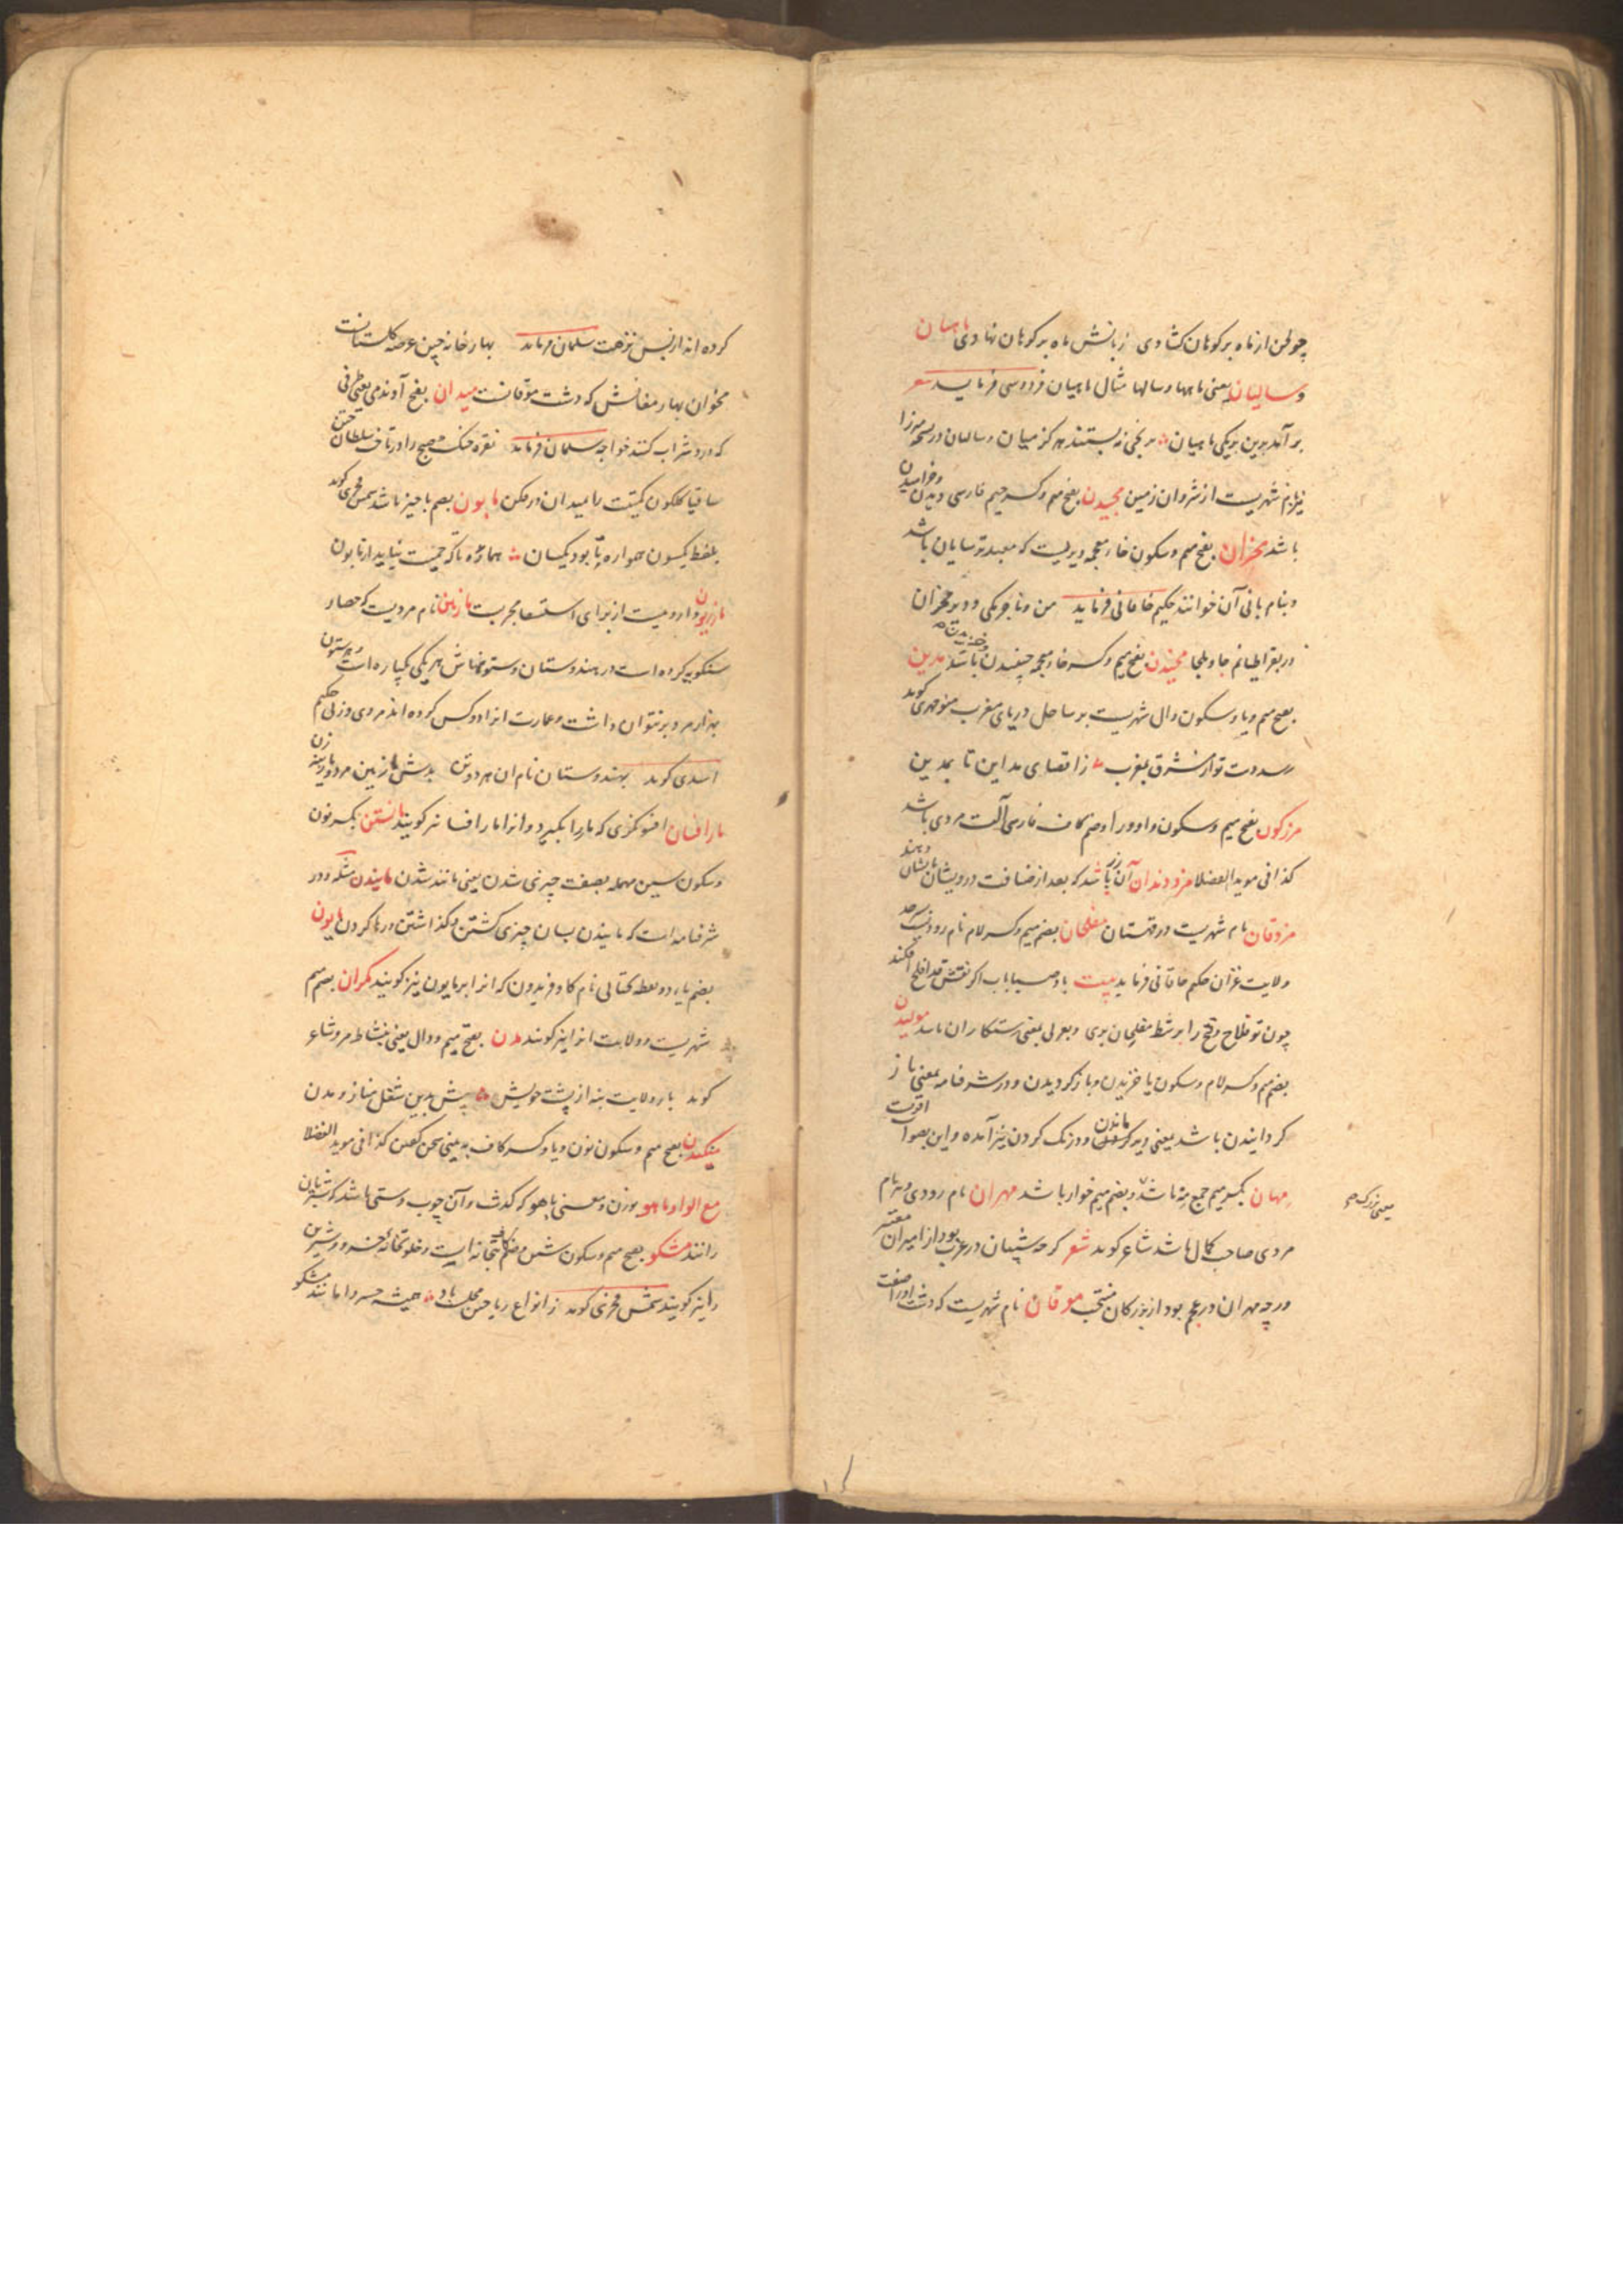 چو لحن از ماه بر کوهان کشادی زبانش ماه بر کوهان نهادی ماهیان
و سالیان یعنی ماهها و سالها مثال ماهیان فردوسی فرماید شعر
بر آمد برین بریکی ماهیان بر نخی نه بستند هرکز میان و سالیان در نسخه میرزا
نیز نام شهریست از شروان زمین مجیدن بفتح میم و کسر جیم فارسی دیدن و خرامیدن
باشد مخران بفتح میم و سکون خاء معجمه دیریست که معبد ترسایان باشد
و بنام بانی آن خوانند حکیم خاقانی فرماید من و ناجرمکی و دیر مخران
در بقراطیانم جا و ملجا مخیدن بفتح میم و کسر خاء معجمه چنیدن باشد مدین
بفتح میم و یا و سکون دال شهریست بر ساحل دریای مغرب منوچهری کوید
رسد دست تو از مشرق بمغرب ز اقصای مداین تا بمدین
مرزکون بفتح میم و سکون واو و را و ضم کاف فارسی آلت مردی باشد
کذا فی موید الفضلا مزد دندان آن زر باشد که بعد از ضیافت درویشان بایشان دهند
مزدقان نام شهریست در قهستان مفلحان بضم میم و کسر لام نام رودیست
ولایت غزان حکیم خاقانی فرماید بیت باد صبا باب اکر نقش قد افلح افکند
چون تو فلاح و فتح را بر شط مفلحان بری و بعربی بمعنی رستکاران باشد مولیدن
بضم میم و کسر لام و سکون یا خزیدن و باز کردیدن و در شرفنامه بمعنی باز
کردانیدن باشد یعنی دیر کردن ماندن و درنک کردن نیز آمده و این بصواب اقربست
مهان بکسر میم جمع مه باشد و بضم میم خوار باشد مهران نام رودی و نام
یعنی بزرک
مردی صاحب کمال باشد شاعر کوید شعر کر چه شیبان در عرب بود از امیران معتبر
ور چه مهران در عجم بود از بزرکان منتخب موقان نام شهریست که دشت او را صفت
کرده اند از بس نزهت سلمان فرماید بهار خانه چین عرصه کلستانست
مخوان بهار مغانش که دشت موقانست میدان بفتح آوند می یعنی ظرفی
که درو شراب کنند خواجه سلمان فرماید نقره خنک صبح را در تاخت سلطان ختن
ساقیا کلکون کمیتت را بمیدان در فکن مابون بضم با حیز باشد شمس فخری کوید
بلفظ یکسون همواره تا بود یکسان هماره تا که حمیت نیاید از مابون
مازریون دارویست از برای استسقا مجربست مازنین نام مردیست که حصار
سنکویه کرده است در هندوستان و ستونهاش هر یکی یکپاره است و هر ستون
بهزار مرد بر نتوان داشت و عمارت انرا دو کس کرده اند مردی و زنی حکیم
اسدی کوید بهندوستان نام ان هر دو تن بدش مازنین مرد و مارینه زن
مارافسان افسونکری که مار را بکیرد و انرا مارافسا نیز کویند مانستن بکسر نون
و سکون سین مهمله بصفت چیزی شدن یعنی مانند شدن مانیدن مثله و در
شرفنامه است که مانیدن بسان چیزی کشتن و کذاشتن و رها کردن مایون
بضم یاء دو نقطه تحتانی نام کاو فریدون که انرا برمایون نیز کویند مکران بضم میم
شهریست و ولایت انرا نیز کویند مدن بفتح میم و دال یعنی بنشاط مرو شاعر
کوید بار ولایت بنه از پشت خویش پیش بدین شغل مناز و مدن
منکیدن بفتح میم و سکون نون و یا و کسر کاف به بینی سخن کفتن کذا فی موید الفضلا
مع الواو ماهو بوزن و معنی باهو که کذشت و آن چوب دستی باشد که شتربان
رانند مشکو بفتح میم و سکون شین و ضم کاف بتخانه ایست و خلوتخانه خسرو و شیرین
را نیز کویند شمس فخری کوید ز انواع ریاحین مجلست باد همیشه خسروا مانند مشکو